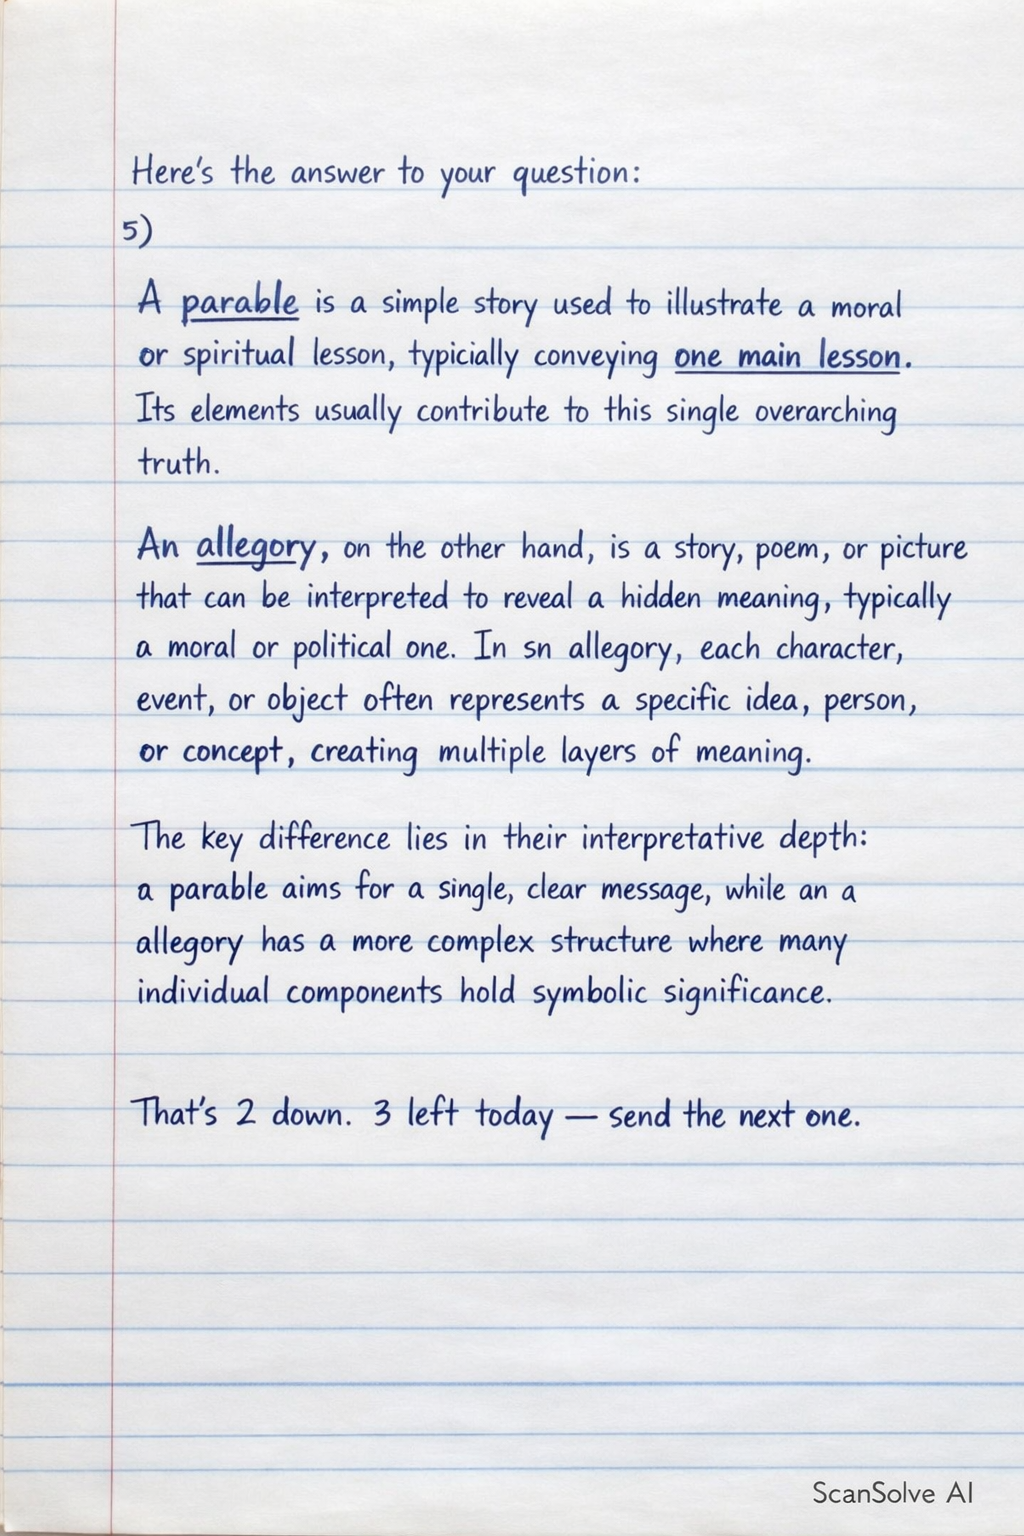 Here's the answer to your question:
5)
A parable is a simple story used to illustrate a moral
or spiritual lesson, typicially conveying one main lesson.
Its elements usually contribute to this single overarching
truth.
An allegory, on the other hand, is a story, poem, or picture
that can be interpreted to reveal a hidden meaning, typically
a moral or political one. In sn allegory, each character,
event, or object often represents a specific idea, person,
or concept, creating multiple layers of meaning.
The key difference lies in their interpretative depth:
a parable aims for a single, clear message, while an a
allegory has a more complex structure where many
individual components hold symbolic significance.
That's 2 down. 3 left today — send the next one.
ScanSolve AI